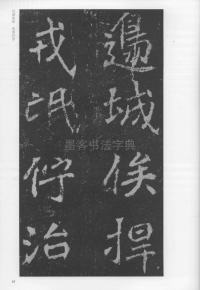 邊城俟捍
戎氓佇治
墨客书法字典